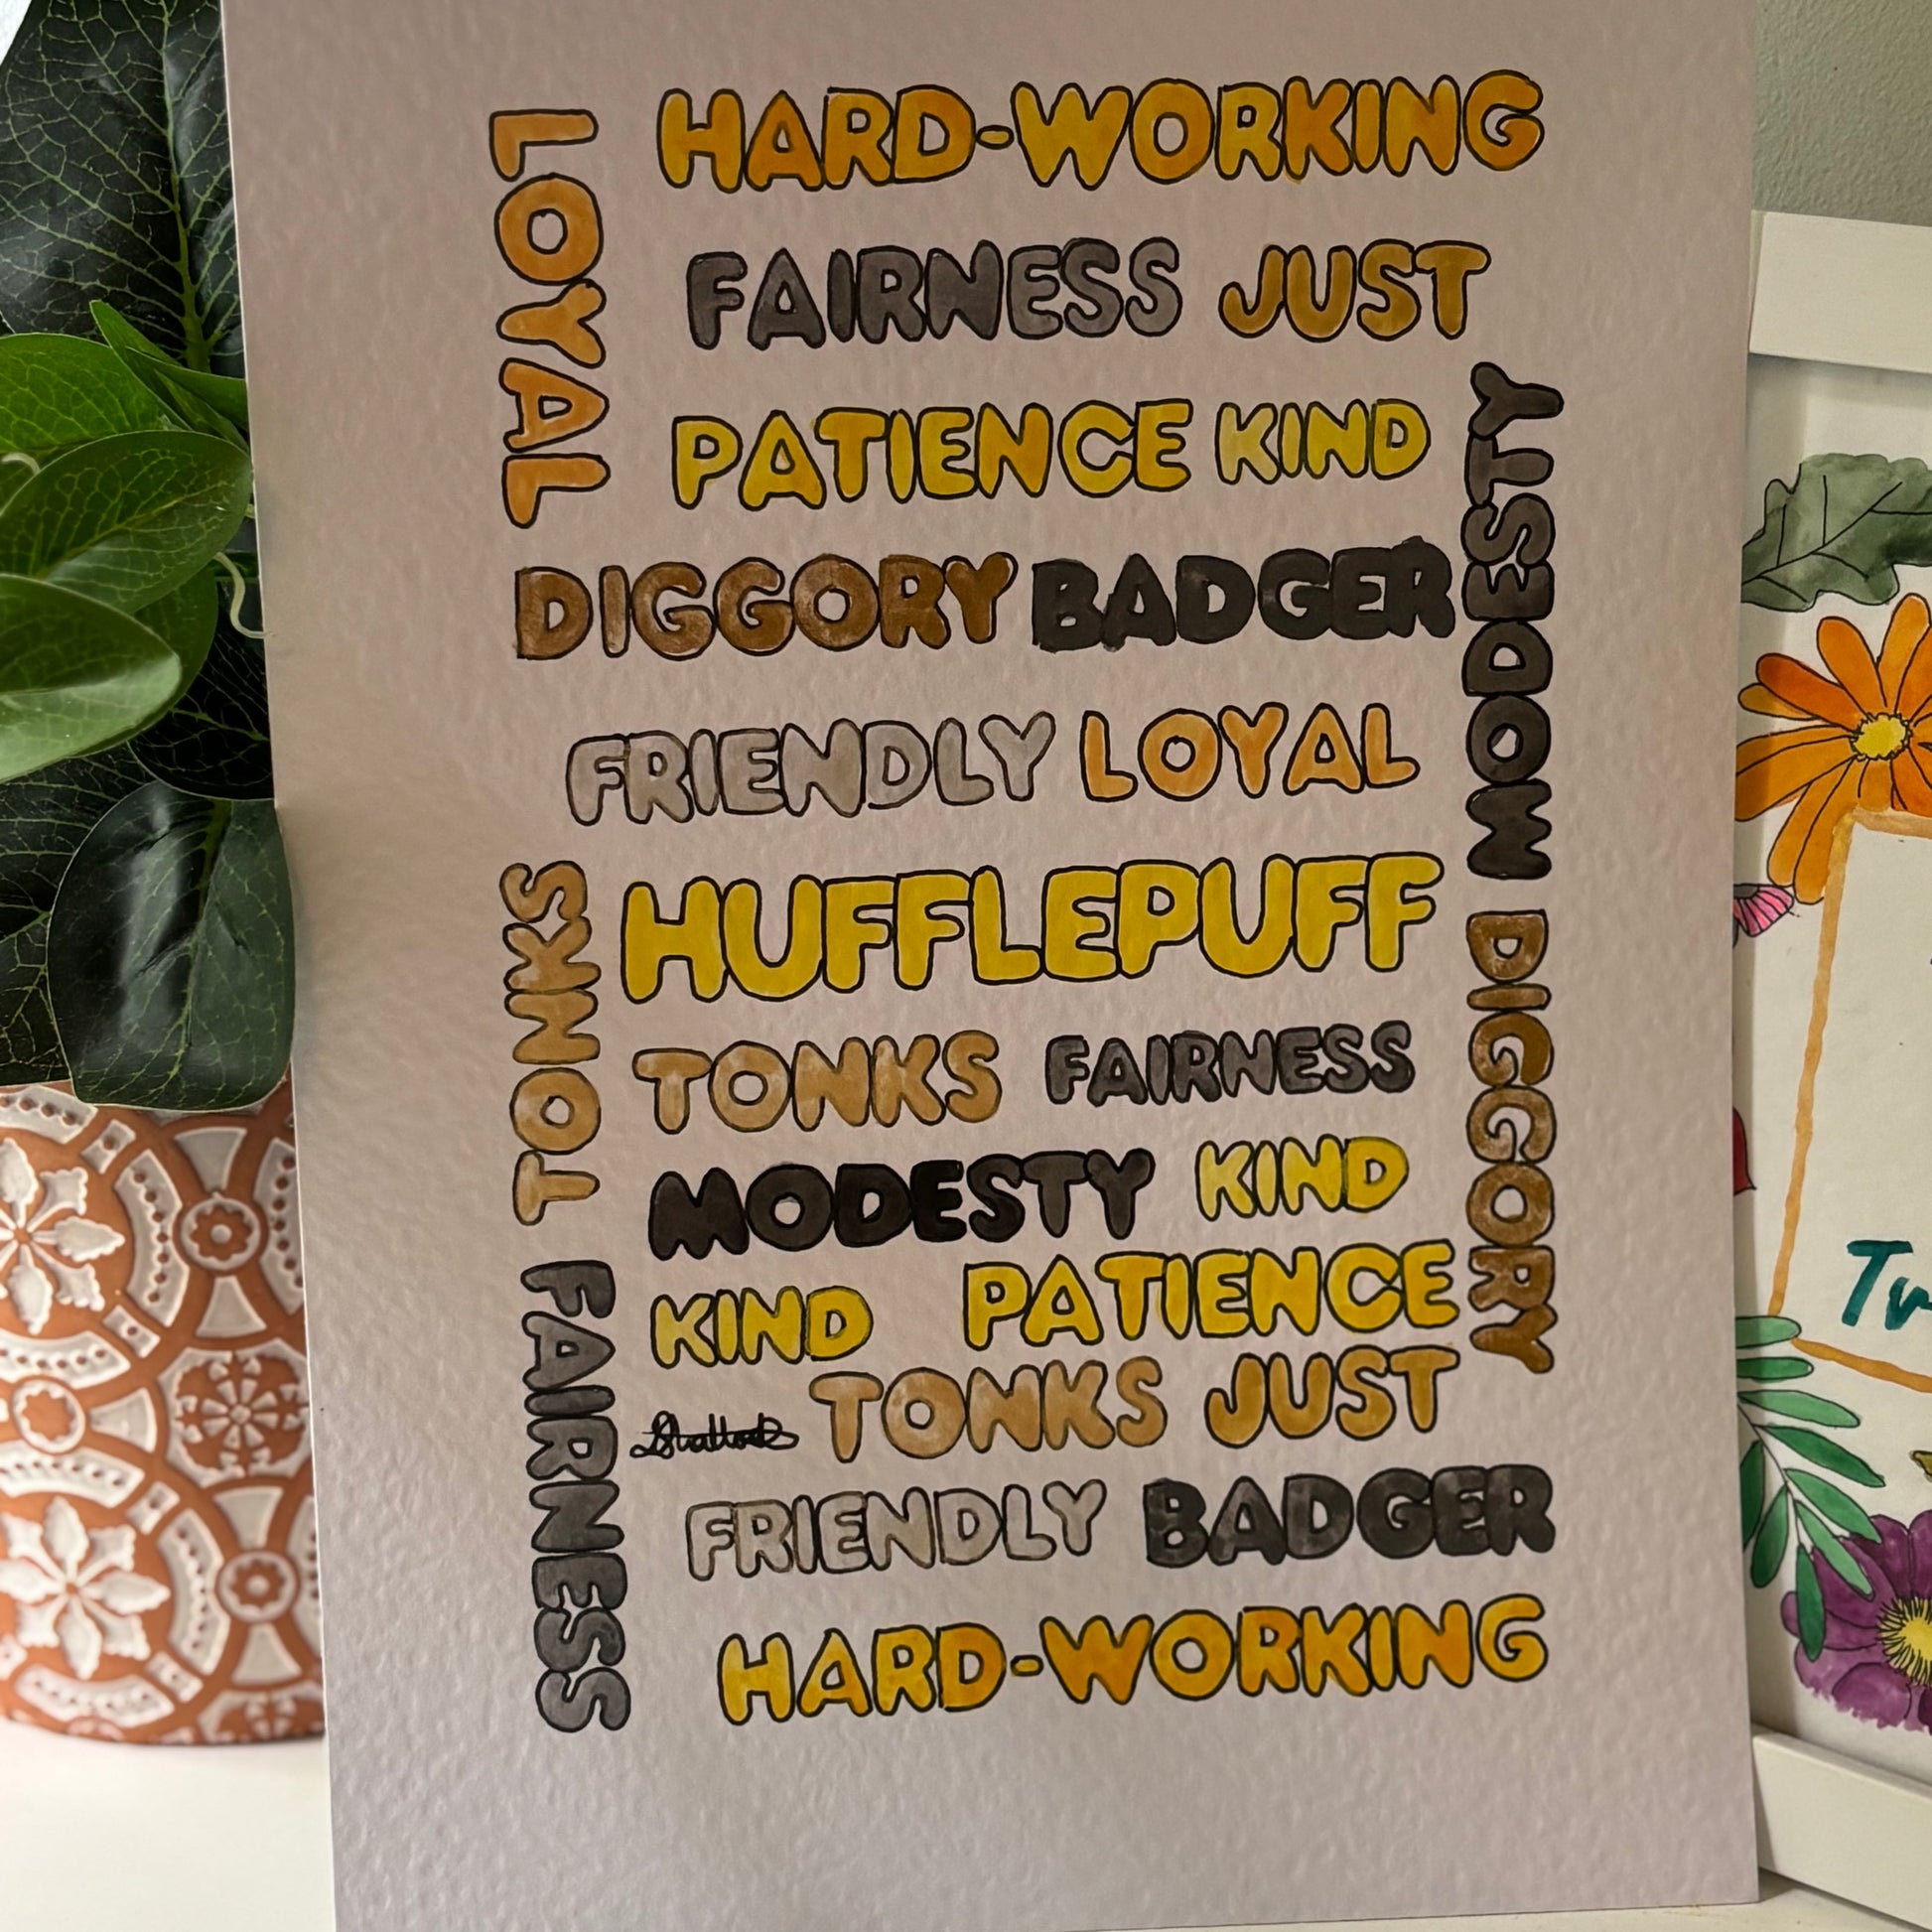 LOYAL
HARD-WORKING
FAIRNESS JUST
PATIENCE KIND
MODESTY
DIGGORY BADGER
FRIENDLY LOYAL
TONKS
HUFFLEPUFF
DIGGORY
TONKS FAIRNESS
MODESTY KIND
FAIRNESS
KIND PATIENCE
TONKS JUST
FRIENDLY BADGER
HARD-WORKING